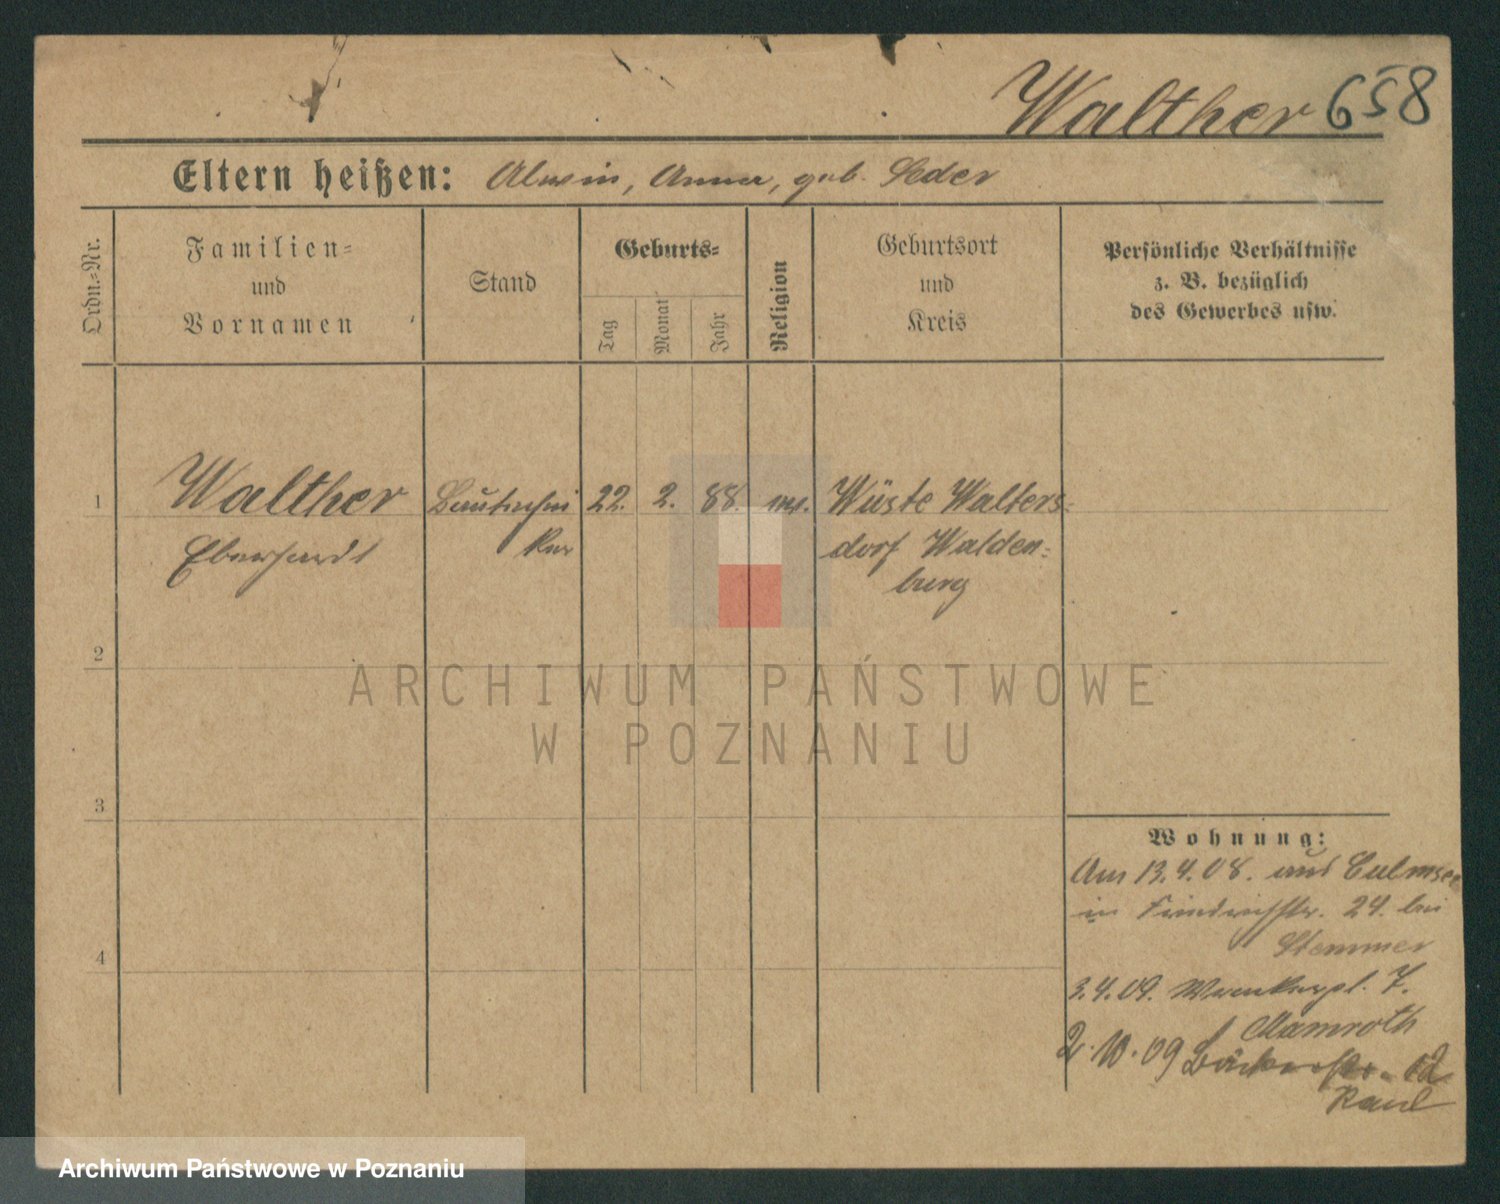 Walther 658
Eltern heißen: Alwin, Anna, geb. Seder
Ordn.=Nr.
Familien=
und
Vornamen
Stand
Geburts=
Tag
Monat
Jahr
Religion
Geburtsort
und
Kreis
Persönliche Verhältnisse
z. B. bezüglich
des Gewerbes usw.
1 Walther Bautechni 22. 2. 88. ev. Wüste Walters=
Eberhardt ker dorf Walden=
burg
2
3
4
Wohnung:
Am 13.4.08. aus Culmsee
in Friedrichstr. 24. bei
Stemmer
3.4.09. pl. 7.
Mamroth
2.10.09 Bäckerstr. 12
Raul
ARCHIWUM PAŃSTWOWE
W POZNANIU
Archiwum Państwowe w Poznaniu